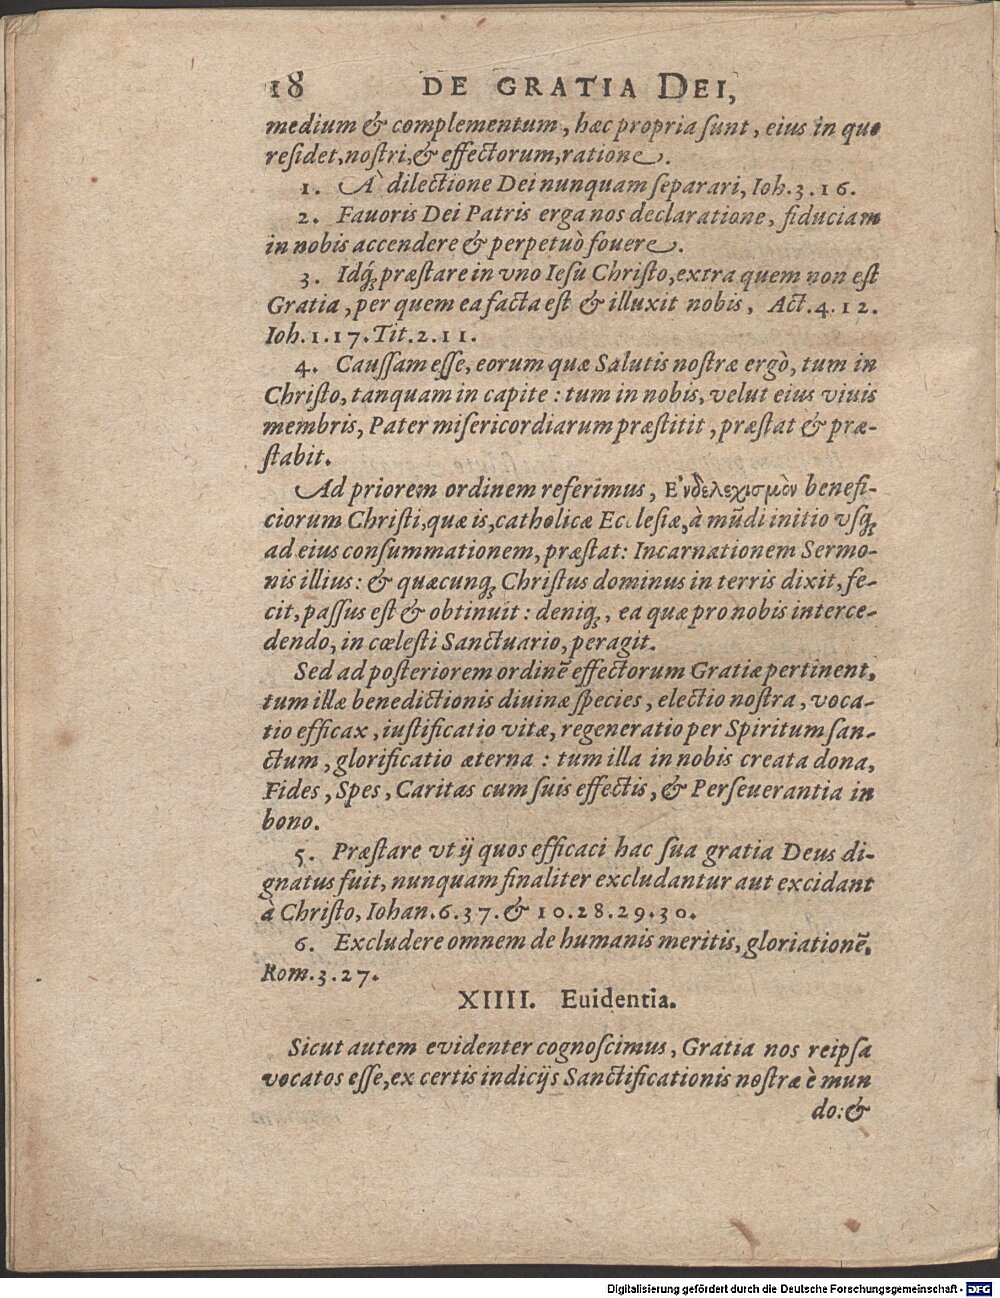 18 DE GRATIA DEI,
medium & complementum, hæc propria ſunt, eius in quo
reſidet, noſtri, & effectorum, ratione.
1. À dilectione Dei nunquam ſeparari, Ioh. 3. 16.
2. Fauoris Dei Patris erga nos declaratione, fiduciam
in nobis accendere & perpetuò fouere.
3. Idq́; præſtare in vno Ieſu Chriſto, extra quem non eſt
Gratia, per quem ea facta eſt & illuxit nobis, Act. 4. 12.
Ioh. 1. 17. Tit. 2. 11.
4. Cauſſam eſſe, eorum quæ Salutis noſtræ ergò, tum in
Chriſto, tanquam in capite: tum in nobis, velut eius viuis
membris, Pater miſericordiarum præſtitit, præſtat & præ-
ſtabit.
Ad priorem ordinem referimus, Ἐνδελεχισμὸν benefi-
ciorum Chriſti, quæ is, catholicæ Eccleſiæ, à mūdi initio vſq;
ad eius conſummationem, præſtat: Incarnationem Sermo-
nis illius: & quæcunq; Chriſtus dominus in terris dixit, fe-
cit, paſſus eſt & obtinuit: deniq;, ea quæ pro nobis interce-
dendo, in cœleſti Sanctuario, peragit.
Sed ad poſteriorem ordinē effectorum Gratiæ pertinent,
tum illæ benedictionis diuinæ ſpecies, electio noſtra, voca-
tio efficax, iuſtificatio vitæ, regeneratio per Spiritum ſan-
ctum, glorificatio æterna: tum illa in nobis creata dona,
Fides, Spes, Caritas cum ſuis effectis, & Perſeuerantia in
bono.
5. Præſtare vt ij quos efficaci hac ſua gratia Deus di-
gnatus fuit, nunquam finaliter excludantur aut excidant
à Chriſto, Iohan. 6. 37. & 10. 28. 29. 30.
6. Excludere omnem de humanis meritis, gloriationē,
Rom. 3. 27.
XIIII. Euidentia.
Sicut autem evidenter cognoſcimus, Gratia nos reipſa
vocatos eſſe, ex certis indicijs Sanctificationis noſtræ è mun
do: &
Digitalisierung gefördert durch die Deutsche Forschungsgemeinschaft - DFG